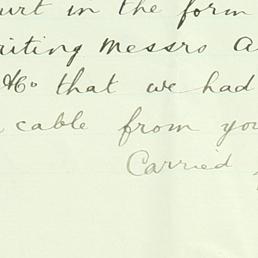 urt in the form
riting Messrs A
&Co that we had
cable from you
Carried